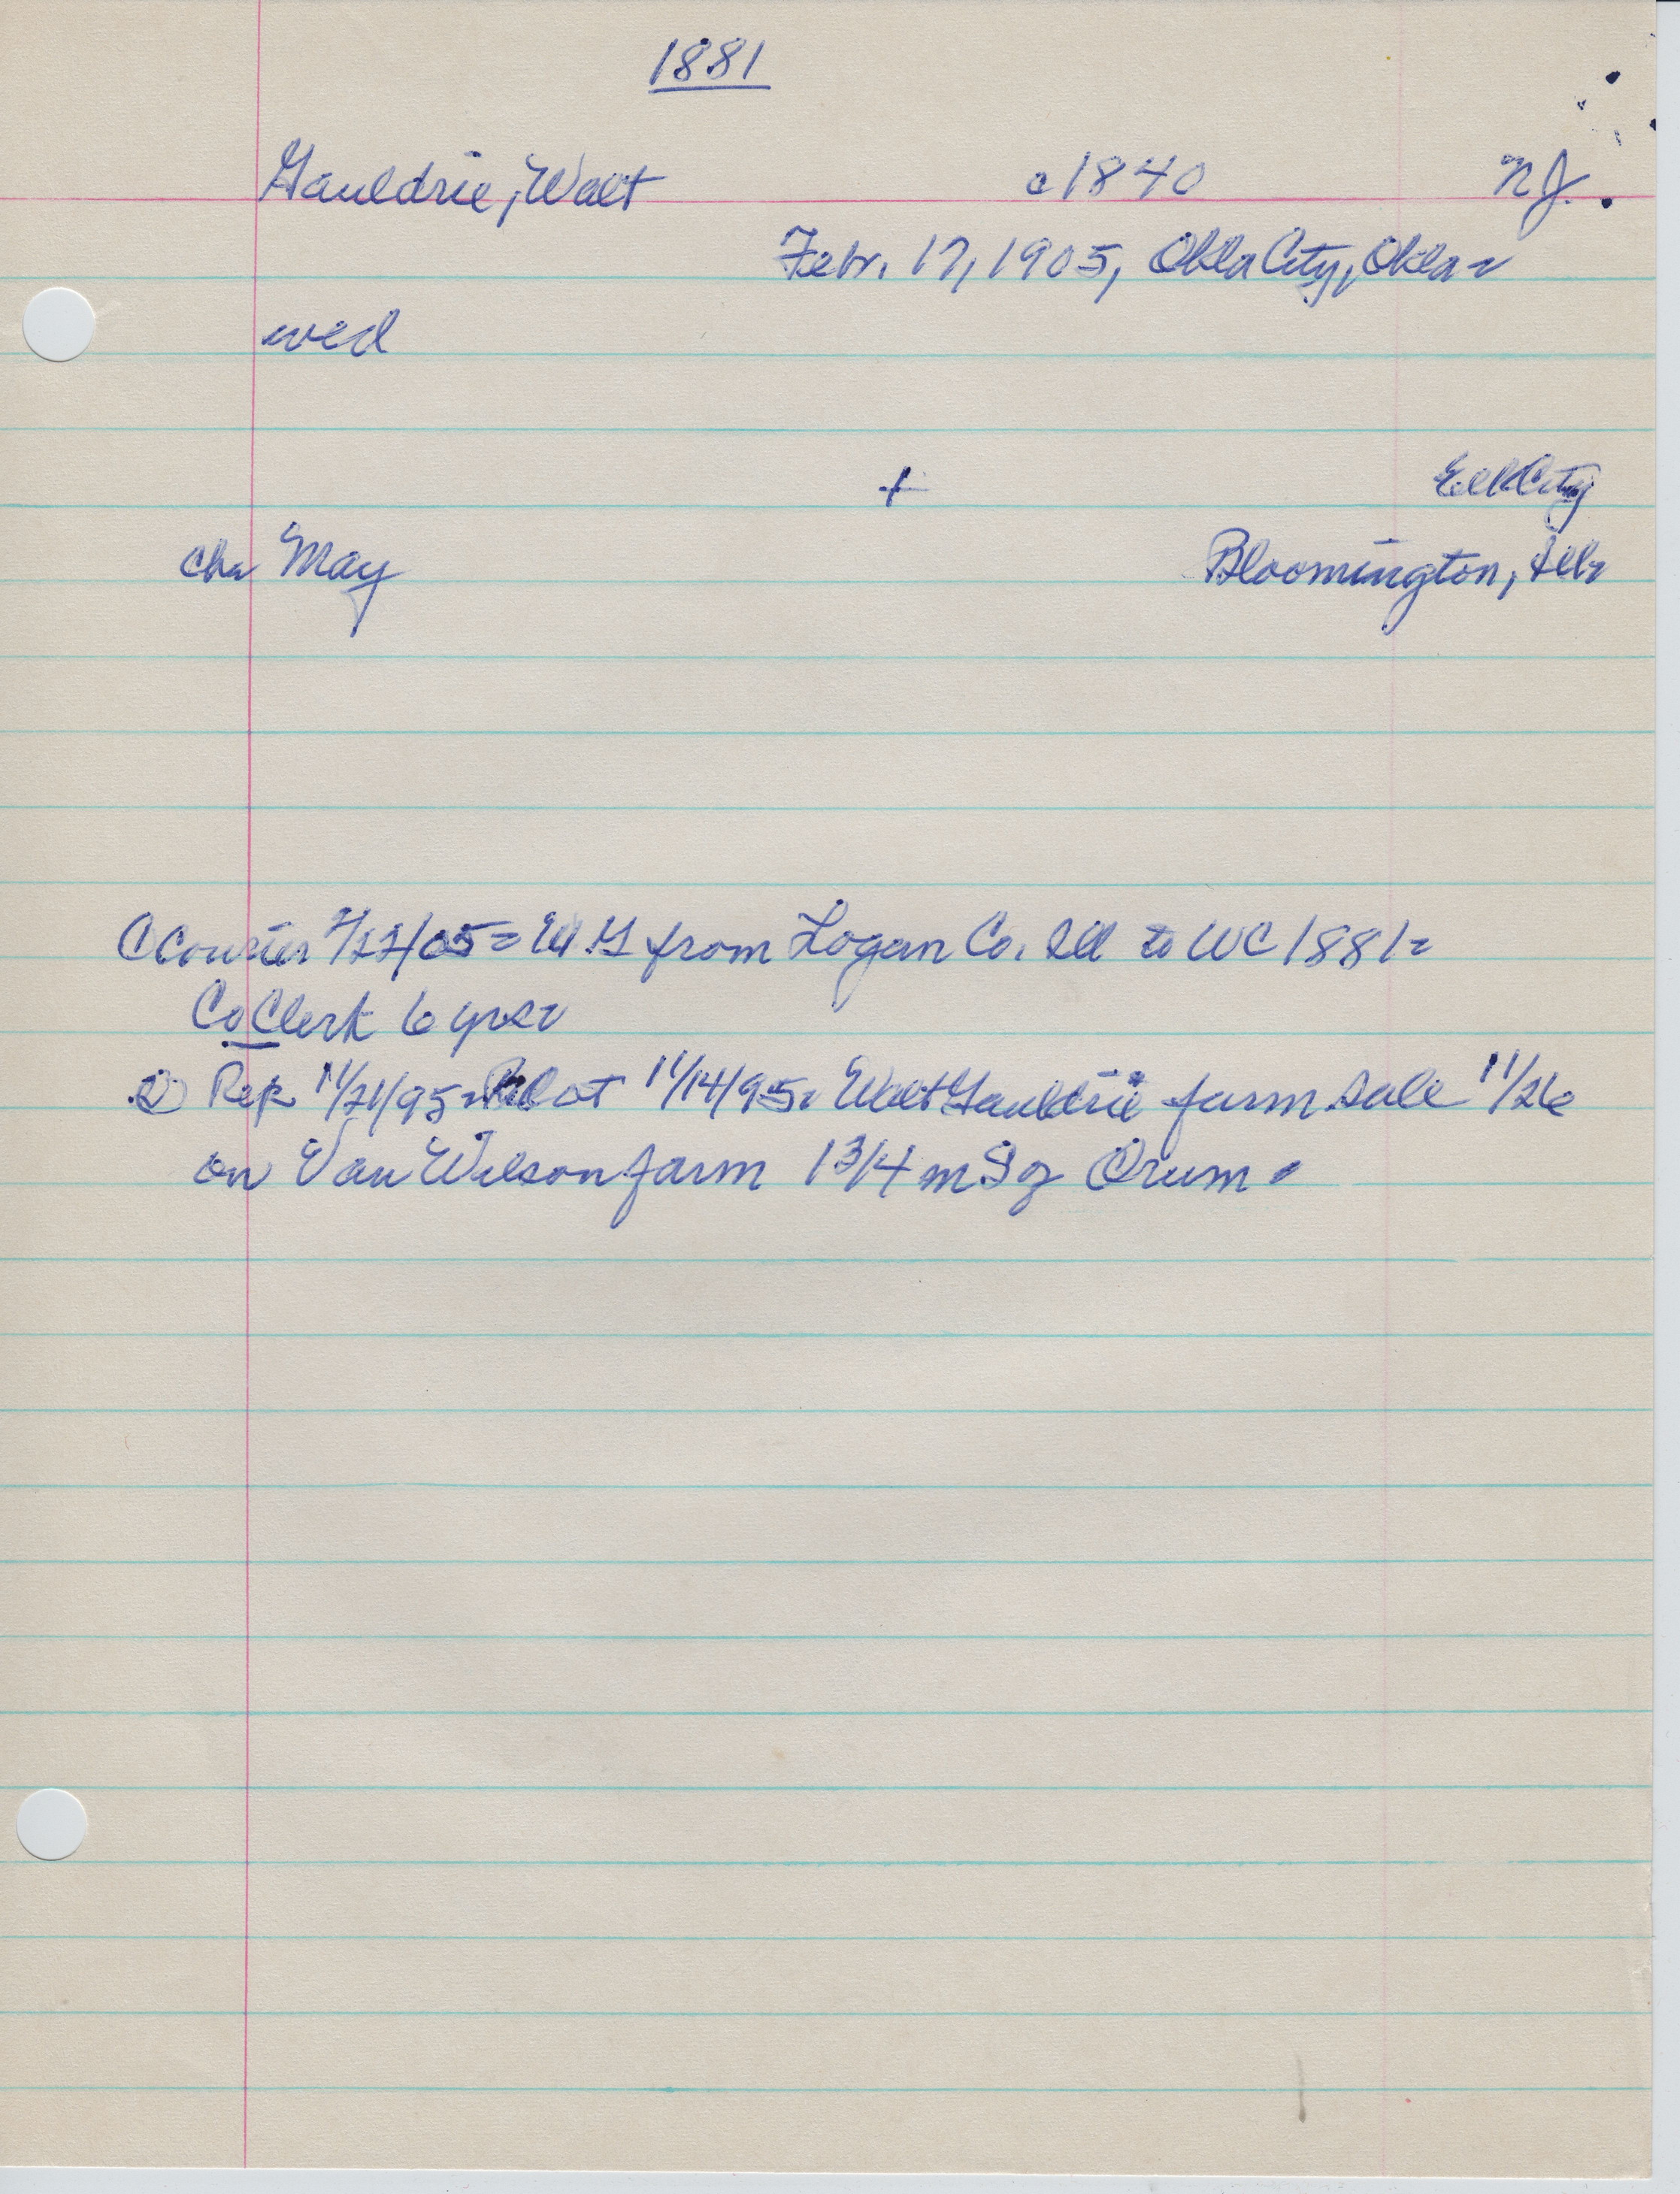 1881
Gauldrie, Walt c1840 N.J.
Febr. 17, 1905, Okla City, Okla -
wed
+ Elk City
ch - May Bloomington, Ill -
Courier /05 = W.G from Logan Co. Ill to WC 1881 =
Co Clerk 6 yrs -
② Rep 11/21/95 = Pilot 11/14/95. Walt Gauldrie farm sale 11/26
on Van Wilson farm 1 3/4 m S of Orum -